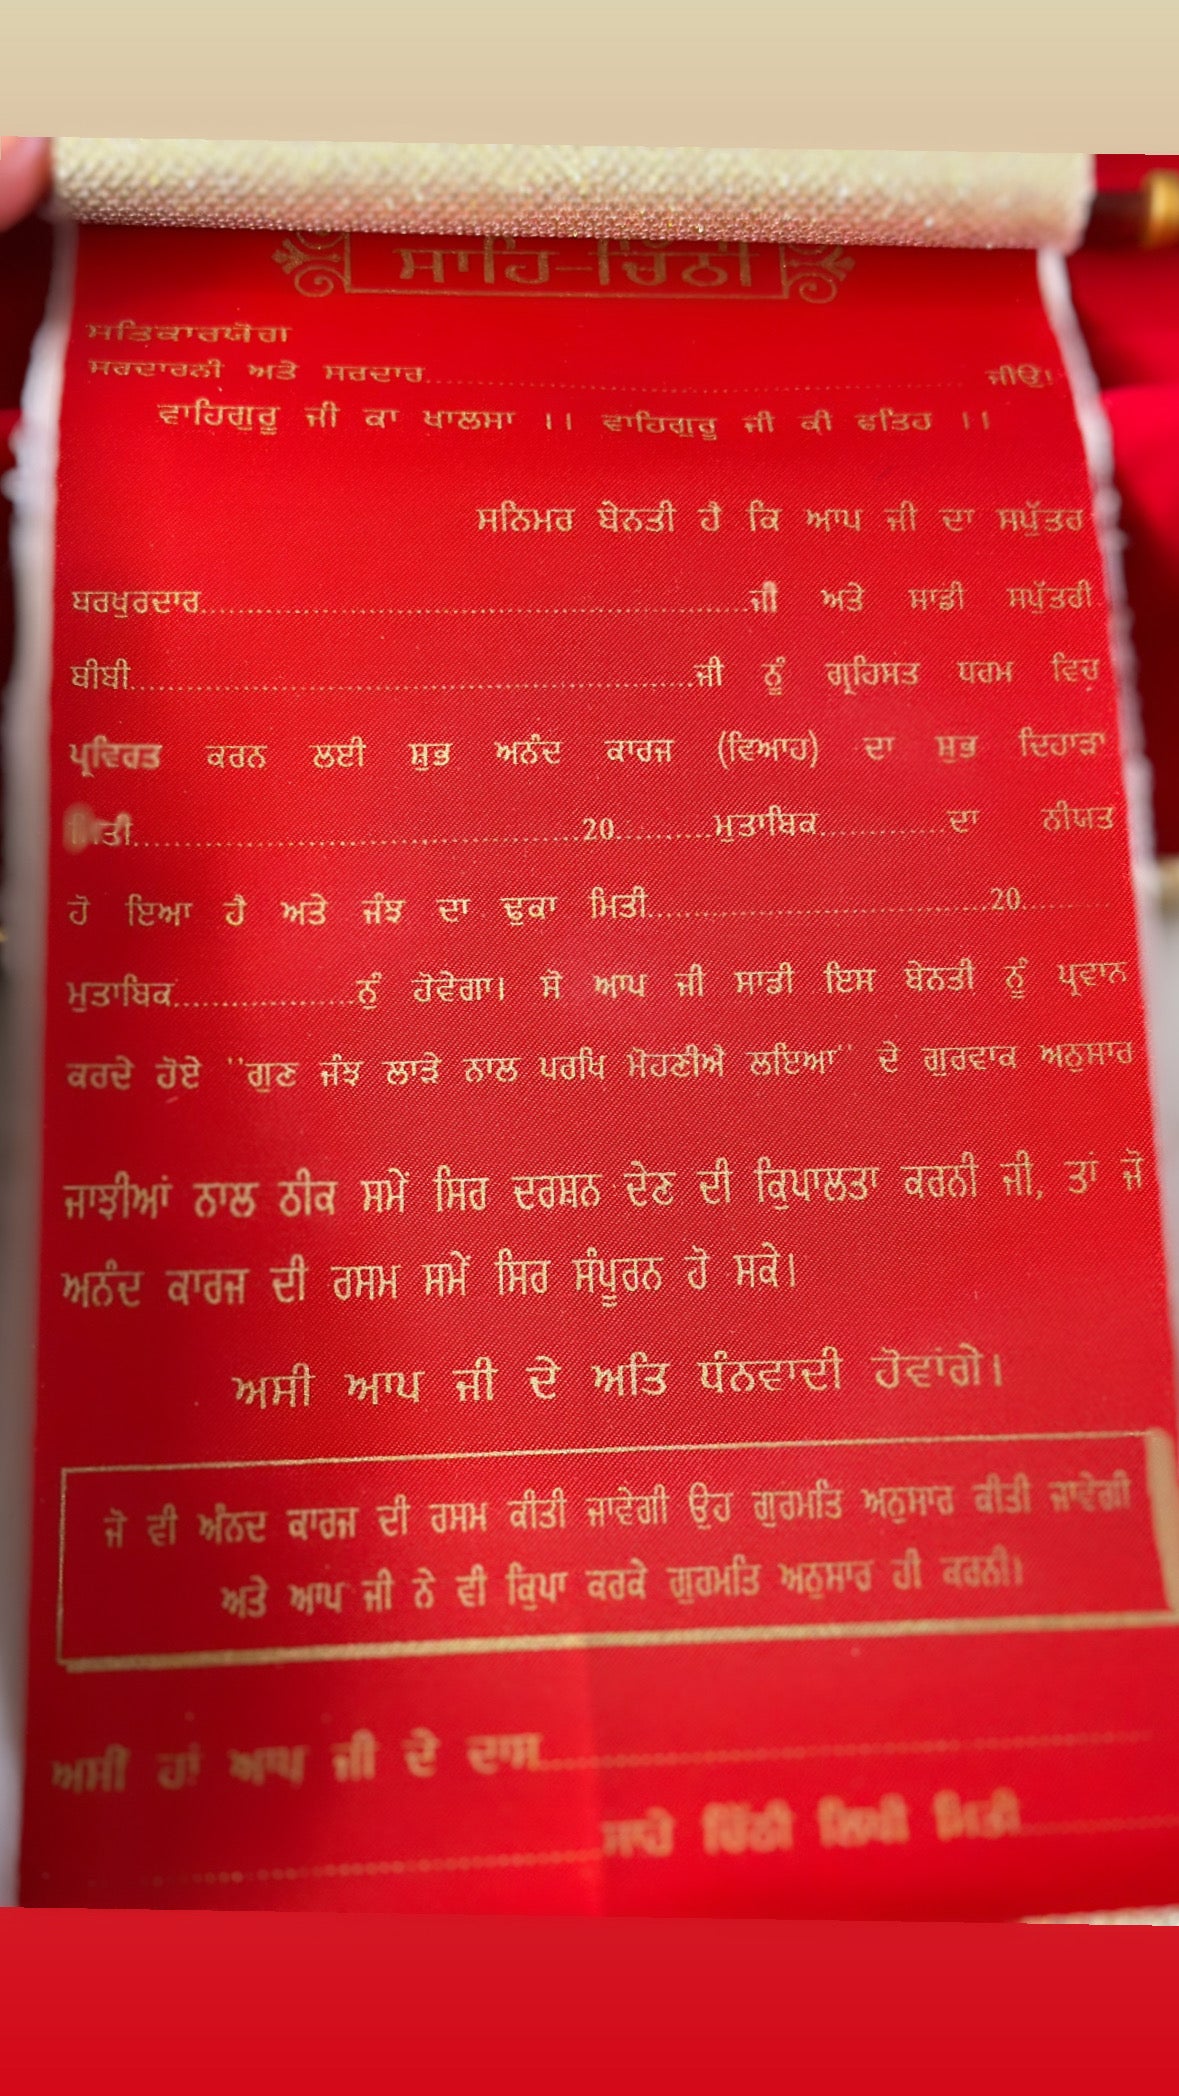 ਸਾਹਿ-ਚਿੱਠੀ
ਸਤਿਕਾਰਯੋਗ
ਸਰਦਾਰਨੀ ਅਤੇ ਸਰਦਾਰ.................................................. ਜੀਓ!
ਵਾਹਿਗੁਰੂ ਜੀ ਕਾ ਖਾਲਸਾ ।। ਵਾਹਿਗੁਰੂ ਜੀ ਕੀ ਫਤਿਹ ।।
ਸਨਿਮਰ ਬੇਨਤੀ ਹੈ ਕਿ ਆਪ ਜੀ ਦਾ ਸਪੁੱਤਰ
ਬਰਖੁਰਦਾਰ..................................................ਜੀ ਅਤੇ ਸਾਡੀ ਸਪੁੱਤਰੀ
ਬੀਬੀ..................................................ਜੀ ਨੂੰ ਗ੍ਰਹਿਸਤ ਧਰਮ ਵਿਚ
ਪ੍ਰਵਿਰਤ ਕਰਨ ਲਈ ਸ਼ੁਭ ਅਨੰਦ ਕਾਰਜ (ਵਿਆਹ) ਦਾ ਸ਼ੁਭ ਦਿਹਾੜਾ
ਮਿਤੀ........................................20..........ਮੁਤਾਬਿਕ.............ਦਾ ਨੀਯਤ
ਹੋ ਇਆ ਹੈ ਅਤੇ ਜੰਝ ਦਾ ਢੁਕਾ ਮਿਤੀ..............................20.........
ਮੁਤਾਬਿਕ..................ਨੂੰ ਹੋਵੇਗਾ। ਸੋ ਆਪ ਜੀ ਸਾਡੀ ਇਸ ਬੇਨਤੀ ਨੂੰ ਪ੍ਰਵਾਨ
ਕਰਦੇ ਹੋਏ ''ਗੁਣ ਜੰਝ ਲਾੜੇ ਨਾਲ ਪਰਖਿ ਮੋਹਣੀਐ ਲਇਆ'' ਦੇ ਗੁਰਵਾਕ ਅਨੁਸਾਰ
ਜਾਝੀਆਂ ਨਾਲ ਠੀਕ ਸਮੇਂ ਸਿਰ ਦਰਸ਼ਨ ਦੇਣ ਦੀ ਕ੍ਰਿਪਾਲਤਾ ਕਰਨੀ ਜੀ, ਤਾਂ ਜੋ
ਅਨੰਦ ਕਾਰਜ ਦੀ ਰਸਮ ਸਮੇਂ ਸਿਰ ਸੰਪੂਰਨ ਹੋ ਸਕੇ।
ਅਸੀ ਆਪ ਜੀ ਦੇ ਅਤਿ ਧੰਨਵਾਦੀ ਹੋਵਾਂਗੇ।
ਜੋ ਵੀ ਅੰਨਦ ਕਾਰਜ ਦੀ ਰਸਮ ਕੀਤੀ ਜਾਵੇਗੀ ਉਹ ਗੁਰਮਤਿ ਅਨੁਸਾਰ ਕੀਤੀ ਜਾਵੇਗੀ
ਅਤੇ ਆਪ ਜੀ ਨੇ ਵੀ ਕ੍ਰਿਪਾ ਕਰਕੇ ਗੁਰਮਤਿ ਅਨੁਸਾਰ ਹੀ ਕਰਨੀ।
ਅਸੀਂ ਹਾਂ ਆਪ ਜੀ ਦੇ ਦਾਸ..................................................
..................................................ਸਾਹੇ ਚਿੱਠੀ ਲਿਖੀ ਮਿਤੀ..............